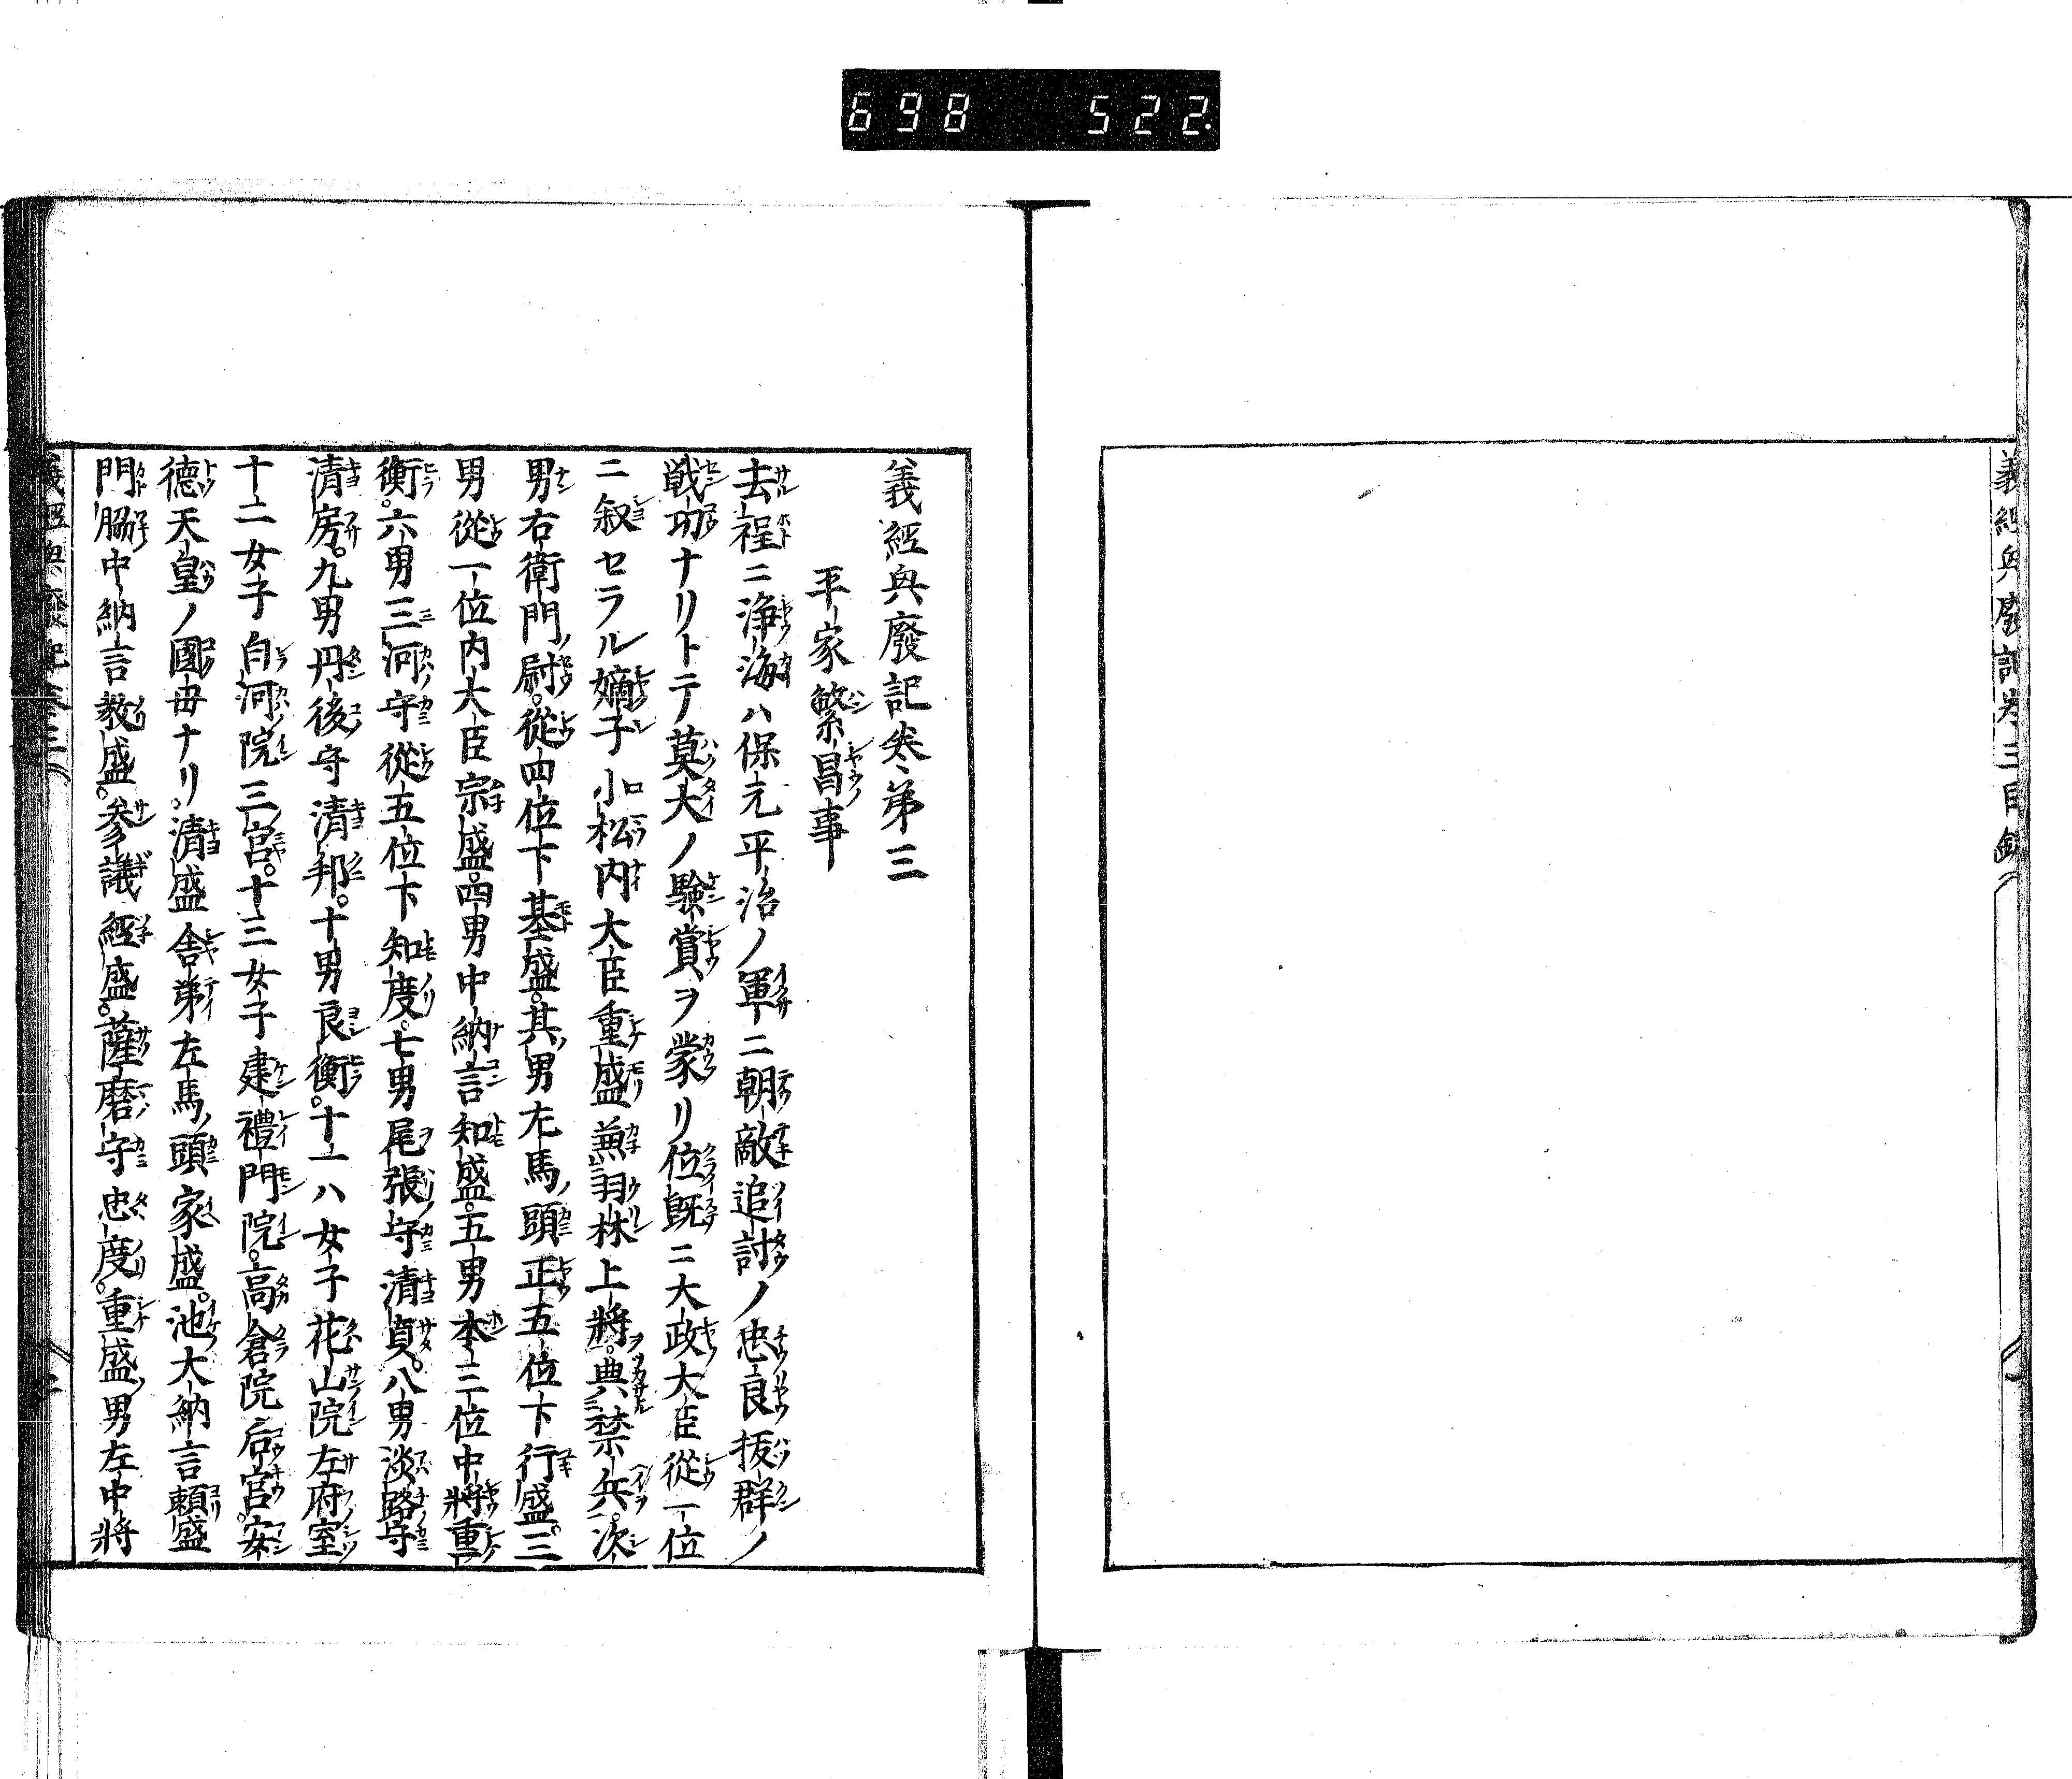 698 522
義經興廢記卷三目録
義經興廢記卷第三
平家繁昌事
去程ニ淨海ハ保元平治ノ軍ニ朝敵追討ノ忠良抜群ノ
戦功ナリトテ莫大ノ験賞ヲ蒙リ位既ニ大政大臣從一位
ニ叙セラル嫡子小松内大臣重盛兼羽林上將。典禁兵。次
男右衛門ノ尉。從四位下基盛。其男左馬ノ頭正五位下行盛。三
男從一位内大臣宗盛。四男中納言知盛。五男本三位中將重
衡。六男三河守從五位下知度。七男尾張守清貞。八男淡路守
清房。九男丹後守清邦。十男良衡。十一ハ女子花山院左府室
十二女子白河院三宮。十三女子建禮門院。高倉院后宮。安
德天皇ノ國母ナリ。清盛舎弟左馬ノ頭家盛。池大納言頼盛
門脇中納言教盛。参議經盛。薩磨守忠度。重盛ノ男左中將
義經興廢記卷三